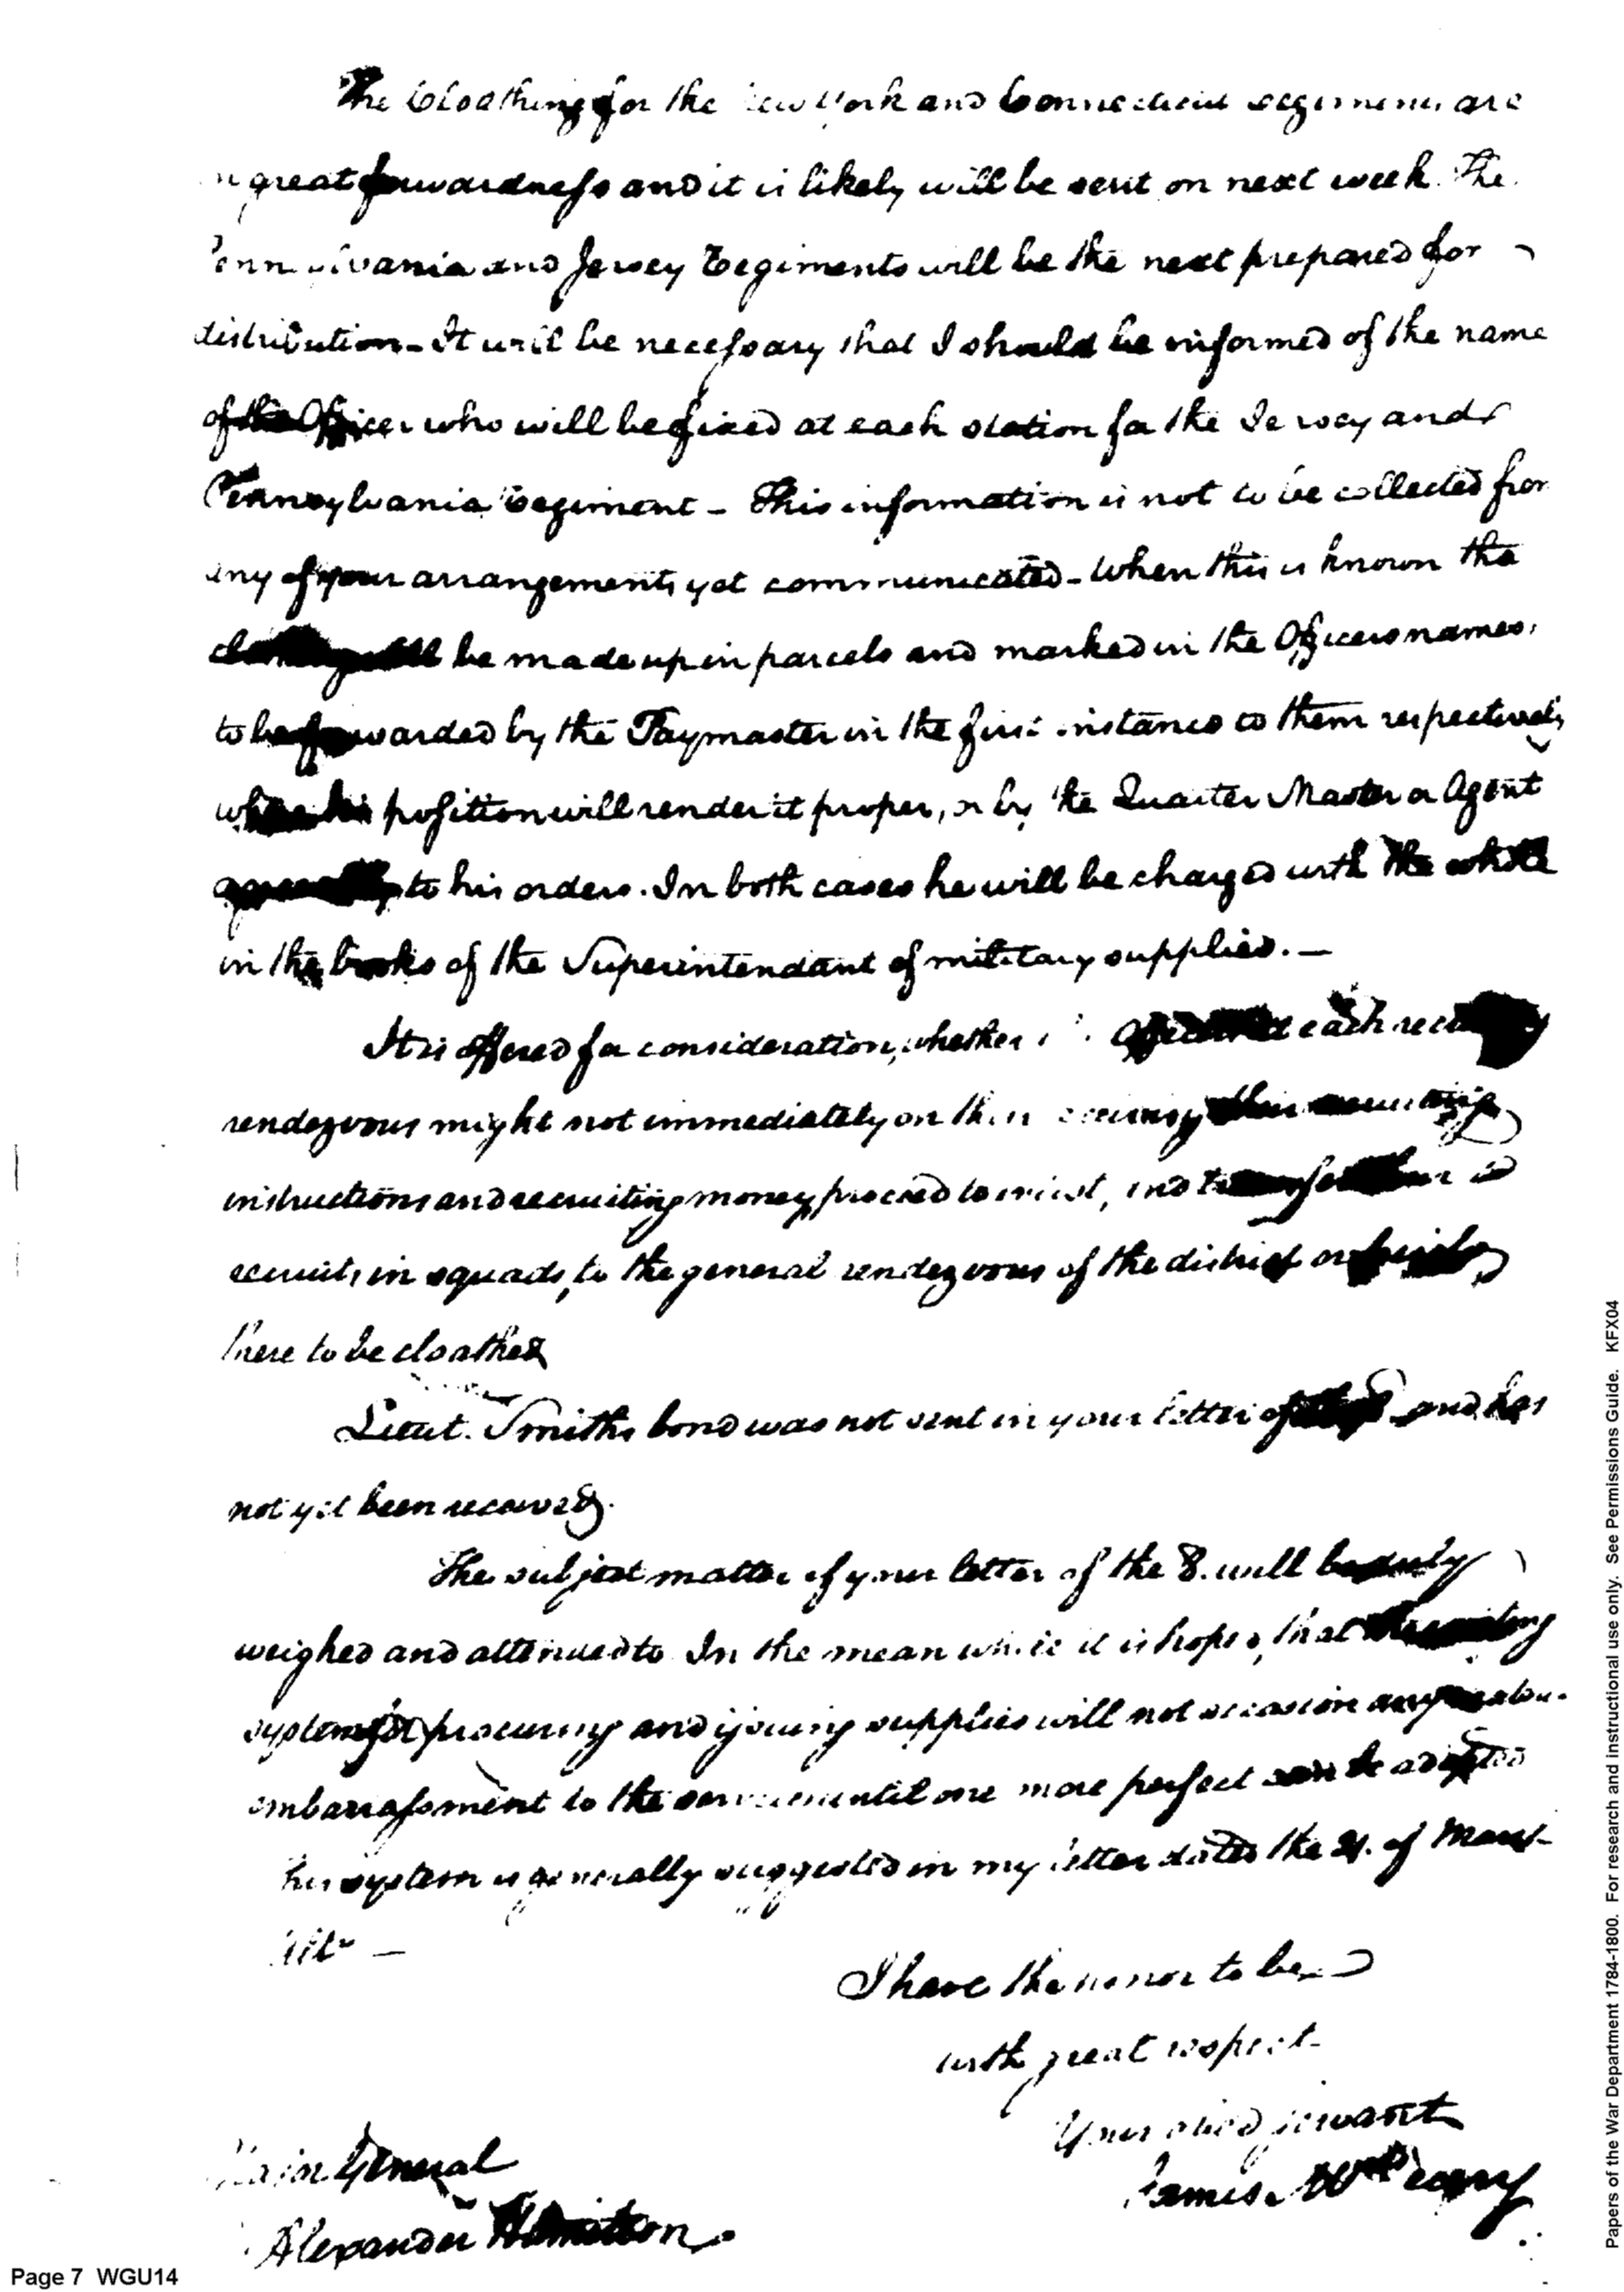 The Cloathing for the New York and Connecticut regiments are
in great forwardness and it is likely will be sent on next week. The
Pennsylvania and Jersey Regiments will be the next prepared for
distribution – It will be necessary that I should be informed of the name
of the Officer who will be fixed at each station for the Jersey and
Pennsylvania Regiment – This information is not to be collected from
any of your arrangements yet communicated – When this is known the
cloathing will be made up in parcels and marked in the Officers names,
to be forwarded by the Paymaster in the first instance to them respectively
where his position will render it proper, or by the Quarter Master or Agent
agreeably to his orders. In both cases he will be charged with the whole
in the books of the Superintendant of military supplies. –
It is offered for consideration, whether each
rendezvous might not immediately on their receiving their recruiting
instructions and recruiting money proceed to inlist, and
recruits in squads, to the general rendezvous of the district or
there to be cloathed
Lieut. Smiths bond was not sent in your letter of and has
not yet been received.
The subject matter of your letter of the 8. will be duly
weighed and attended to. In the mean while it is hoped, that
system for procuring and issuing supplies will not occasion any
embarrassment to the service until one more perfect can be adopted
This system is generally suggested in my letter dated the of March
Ulto –
I have the honor to be
with great respect
Your obed servant
James McHenry
Major General
Alexander Hamilton.
Page 7 WGU14
Papers of the War Department 1784-1800. For research and instructional use only. See Permissions Guide. KFX04